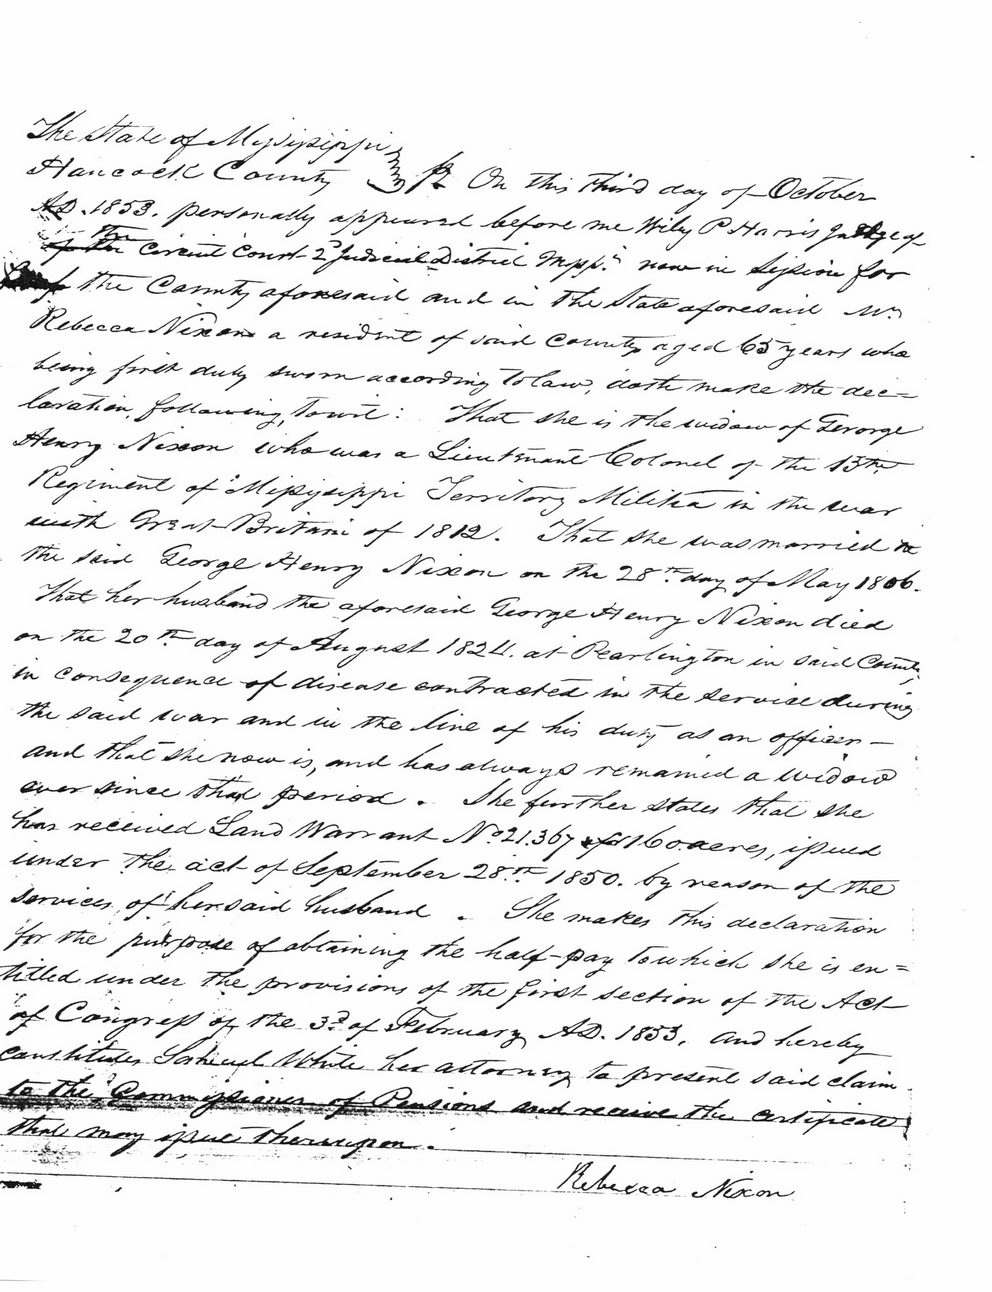 The State of Mississippi
Hancock County On this third day of October
AD. 1853. personally appeared before me Wiley P Harris Judge of
the Circuit Court 2d Judicial District Mpp. now in Session for
the County aforesaid and in the State aforesaid Mrs
Rebecca Nixon a resident of said County aged 65 years who
being first duly sworn according to law, doth make the dec=
laration, following, to wit: That she is the widow of George
Henry Nixon who was a Lieutenant Colonel of the 13th
Regiment of Mississippi Territory Militia in the war
with Great-Britain of 1812. That she was married to
the said George Henry Nixon on the 28th day of May 1806.
That her husband the aforesaid George Henry Nixon died
on the 20th day of August 1824. at Pearlington in said County,
in consequence of disease contracted in the service during
the said war and in the line of his duty as an officer -
and that she now is, and has always remained a widow
ever since that period. She further states that she
has received Land Warrant No 21.367 for 160 acres, issued
under the act of September 28th 1850. by reason of the
services of her said husband. She makes this declaration
for the purpose of obtaining the half-pay to which she is en=
titled under the provisions of the first section of the Act
of Congress of the 3d of February AD. 1853, and hereby
constitutes Samuel White her attorney to present said claim
to the Commissioner of Pensions and receive the certificate
that may issue thereupon.
Rebecca Nixon